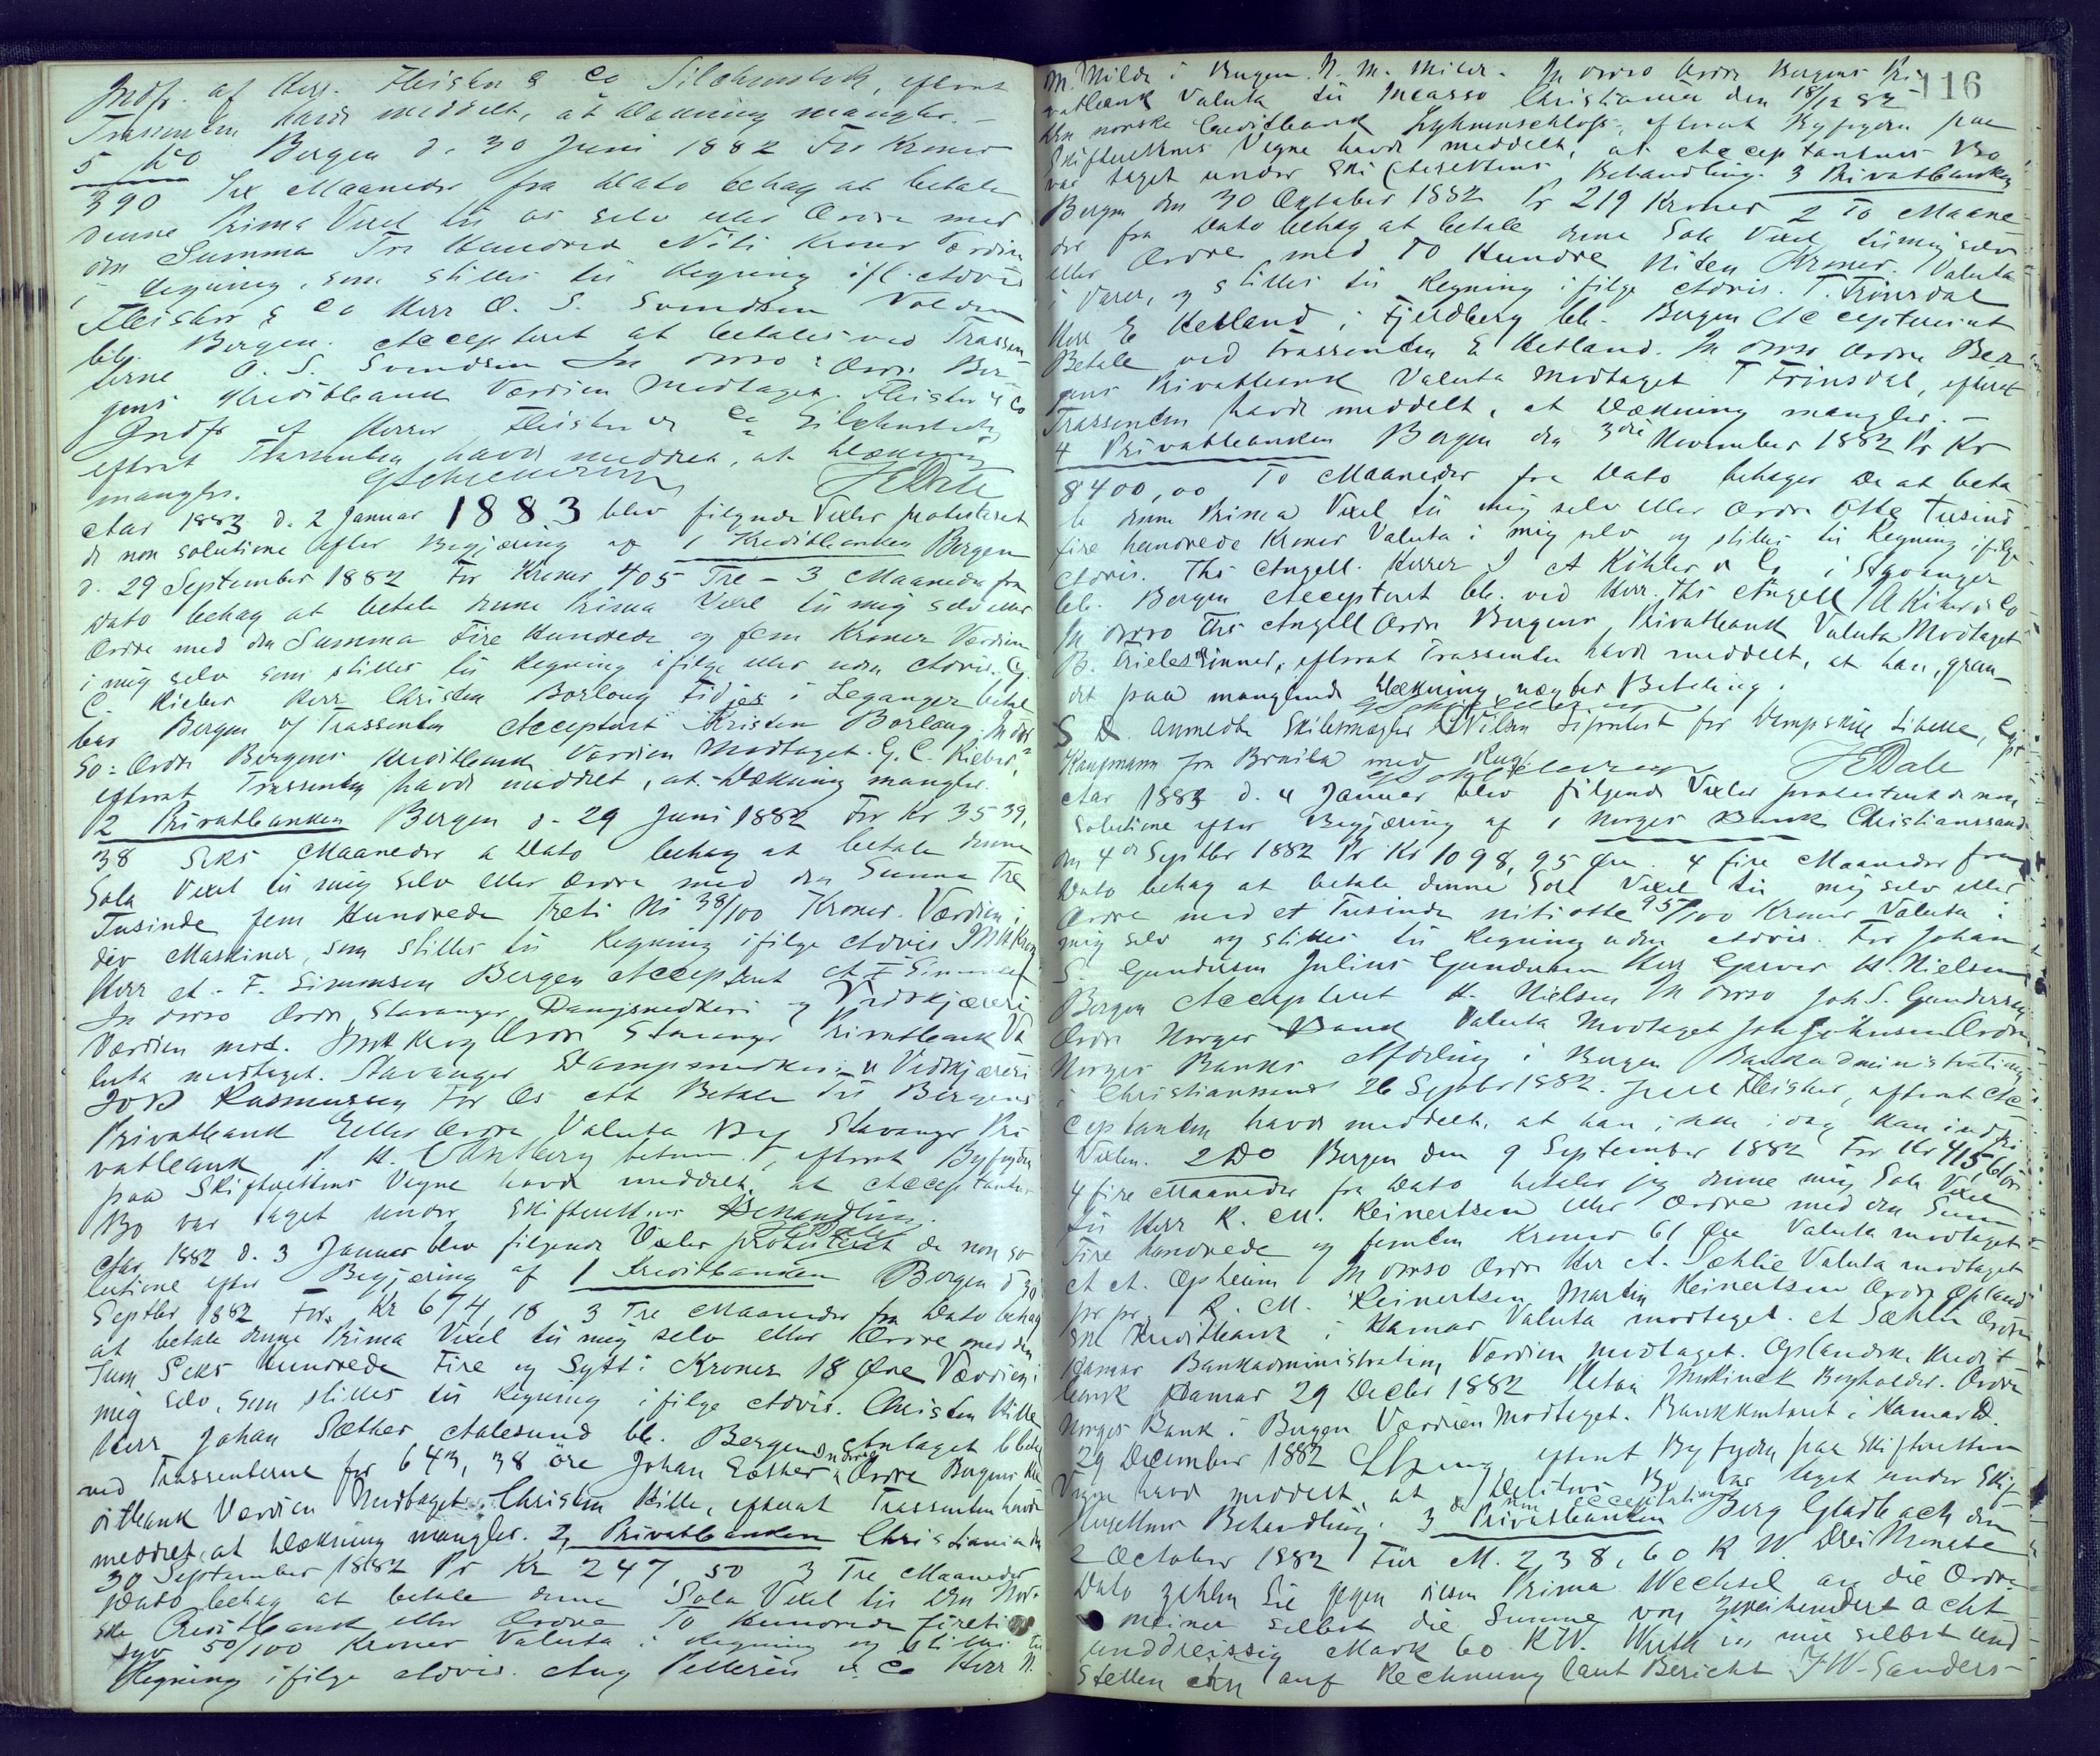 Indf. af Herr. Fleischer & Co Silchenstedt, efterat
Trassenten havde meddelt, at Dækning mangler. -
5 Do Bergen d. 30 Juni 1882 For Kroner
390 Sex Maaneder fra Dato behag at betale
denne Prima Vexel til os selv eller Ordre med
den Summa Tre Hundrede Niti Kroner Værdien
i Regning, som stilles til Regning ifl. Advis
Fleischer & Co Herr O. S. Svendsen Volden
blb. Bergen. Accepteret at betales ved Trassen-
terne O. S. Svendsen In dosso: Ordre Ber-
gens Kreditbank Værdien Modtaget. Fleischer & Co
Indfr af Herrer Fleischer & Co
efterat Trassenten havde meddelt, at Dækning
mangler. HDale
Aar 1883 d. 2 Januar 1883 blev følgende Vexler protesteret
de non solutione efter Begjæring af 1 Kreditbanken Bergen
d. 29 September 1882 For Kroner 405 Tre - 3 Maaneder fra
Dato behag at betale denne Prima Vexel til mig selv eller
Ordre med den Summa Fire Hundrede og fem Kroner Værdien
i mig selv som stilles til Regning ifølge eller uden Advis. G.
C. Rieber Herr Christen Borlaug Fidjes i Leganger betal
bar Bergen v/ Trassenten Accepteret Kristen Borlaug. In dos
so: Ordre Bergens Kreditbank Værdien Modtaget. G. C. Rieber,
efterat Trassenten havde meddelt, at Dækning mangler.
2 Privatbanken Bergen d. 29 Juni 1882 For Kr 3539,
38 Seks Maaneder a Dato behag at betale denne
Sola Vexel til mig selv eller Ordre med den Summa Tre
Tusinde fem Hundrede Treti Ni 38/100 Kroner. Værdien i
div Maskiner, som stilles til Regning ifølge Advis
Herr A. F. Simonsen Bergen Accepteret A F Simonsen
In dosso Ordre Stavanger Dampsnedkeri og Vedskjæreri
Værdien mod. Ordre Stavanger Privatbank Va
luta modtaget. Stavanger Dampsnedkeri & Vedskjæreri
Job Rasmussen For Os at Betale til Bergens
Privatbank Eller Ordre Valuta Stavanger Pri
vatbank efterat Byfogden
paa Skifterettens Vegne havde meddelt, at Acceptanter
Bo var taget under Skifterettens Behandling.
HDale
Aar 1882 d. 3 Januar blev følgende Vexler protesteret de non so
lutione efter Begjæring af 1 Kreditbanken Bergen d 30
Septbr 1882 For Kr 674,18 3 Tre Maaneder fra Dato behag
at betale denne Prima Vexel til mig selv eller Ordre med den
Sum Seks Hundrede Fire og Sytti Kroner 18 Øre Værdien i
mig selv, som stilles til Regning ifølge Advis. Christen Kille
Herr Johan Sæther Aalesund bb. Bergen Antaget
ved Trassenterne for 643,38 öre Johan Sæther In dosso Ordre Bergens Kre
ditbank Værdien Modtaget. Christen Kille, efterat Trassenten havde
meddelt, at Dækning mangler. 2, Privatbanken Christiania den
30 September 1882 Pr Kr 247,50 3 Tre Maaneder
Dato behag at betale denne Sola Vexel til Den Nor-
ske Creditbank eller Ordre To Hundrede Fireti
syv 50/100 Kroner Valuta i Regning og stilles til
Regning ifølge Advis. Aug Pettersen & Co Herr N.
116
M. Milde i Bergen. N. M. Milde. In dosso Ordre Bergens Pri-
vatbank Valuta til Incasso Christiania den 18/12 82
Den norske Creditbank efterat Byfogden paa
Skifterettens Vegne havde meddelt, at Acceptantens Bo
var taget under Skifterettens Behandling. 3 Privatbanken
Bergen den 30 Oktober 1882 Pr 219 Kroner 2 To Maane-
der fra Dato behag at betale denne Sola Vexel til mig selv
eller Ordre med To Hundre Niten Kroner. Valuta
i Varer, og stilles til Regning ifølge Advis. T. Frinsdal
Herr E Hetland i Fjeldberg bb. Bergen Accepteret at
Betale ved Trassenten E Hetland. In dosso Ordre Ber-
gens Privatbank Valuta Modtaget T Frinsdal, efterat
Trassenten havde meddelt, at Dækning mangler. -
4 Privatbanken Bergen den 3die November 1882 Pr Kr
8400,00 To Maaneder fra Dato behager De at beta
le denne Prima Vexel til mig selv eller Ordre Otte Tusend
fire hundrede Kroner Valuta i mig selv og stilles til Regning ifølge
Advis. Ths Angell. Herrer J A Köhler & Co i Stavanger
bb. Bergen Accepteret bb. ved Herr. Ths Angell
In dosso Ths Angell Ordre Bergens Privatbank Valuta Modtaget
efterat Trassenten havde meddelt, at han, grun-
det paa manglende Dækning, nægter Betaling.
S D. anmeldte Skibsmægler Nilsen Søprotest for Dampskib
Kaupmann fra Braila med Rug.
HDale
Aar 1883 d. 4 Januar blev følgende Vexler protesteret de non
solutione efter Begjæring af 1 Norges Bank Christianssand
den 4de Septbr 1882 Pr Kr 1098,95 Øre. 4 fire Maaneder fra
Dato behag at betale denne Sola Vexel til mig selv eller
Ordre med et Tusinde nitiotte 95/100 Kroner Valuta i
mig selv og stilles til Regning uden Advis. For Johan
S. Gundersen Julius Gundersen Herr H. Nielsen
Bergen Accepteret H. Nielsen In dosso Joh S. Gundersen
Ordre Norges Bank Valuta Modtaget Ordre
Norges Banks Afdeling i Bergen Bankadministrationen
i Christianssand 26 Septbr 1882. Juell Fleischer, efterat Ac-
ceptanten havde meddelt, at han ikke i dag kan indfri
Vexlen. 2 Do Bergen den 9 September 1882 For Kr 415,61 Ør
4 fire Maaneder fra Dato betaler jeg denne min Sola Vexel
til Herr R. M. Reinertsen eller Ordre med den Sum
Fire hundrede og femten Kroner 61 Øre Valuta modtaget
A A. Opheim In dosso Ordre Her A. Sæhlie Valuta modtaget
pr pr, R. M. Reinertsen Martin Reinertsen Ordre Opland
ske Kreditbank i Hamar Valuta modtaget. A Sæhlie Ordre
Hamar Bankadministration Værdien modtaget. Oplandske Kredit-
bank Hamar 29 Decbr 1882 Bogholder. Ordre
Norges Bank i Bergen Værdien Modtaget. Bankkontoret i Hamar D.
29 December 1882 efterat Byfogden paa Skifterettens
Vegne havde meddelt, at Debitors Bo var taget under Skif-
terettens Behandling. de non acceptatione 3 Privatbanken Berg Gladbach den
2 October 1882 Für M. 238,60 R W. Drei Monate
Dato zahlen Sie gegen diesen Prima Wechsel an die Ordre
meiner selbst die Summe von zweihundert acht
unddreissig Mark 60 R W. Werth in mir selbst und
stellen ihn auf Rechnung laut Bericht J W. Sanders-